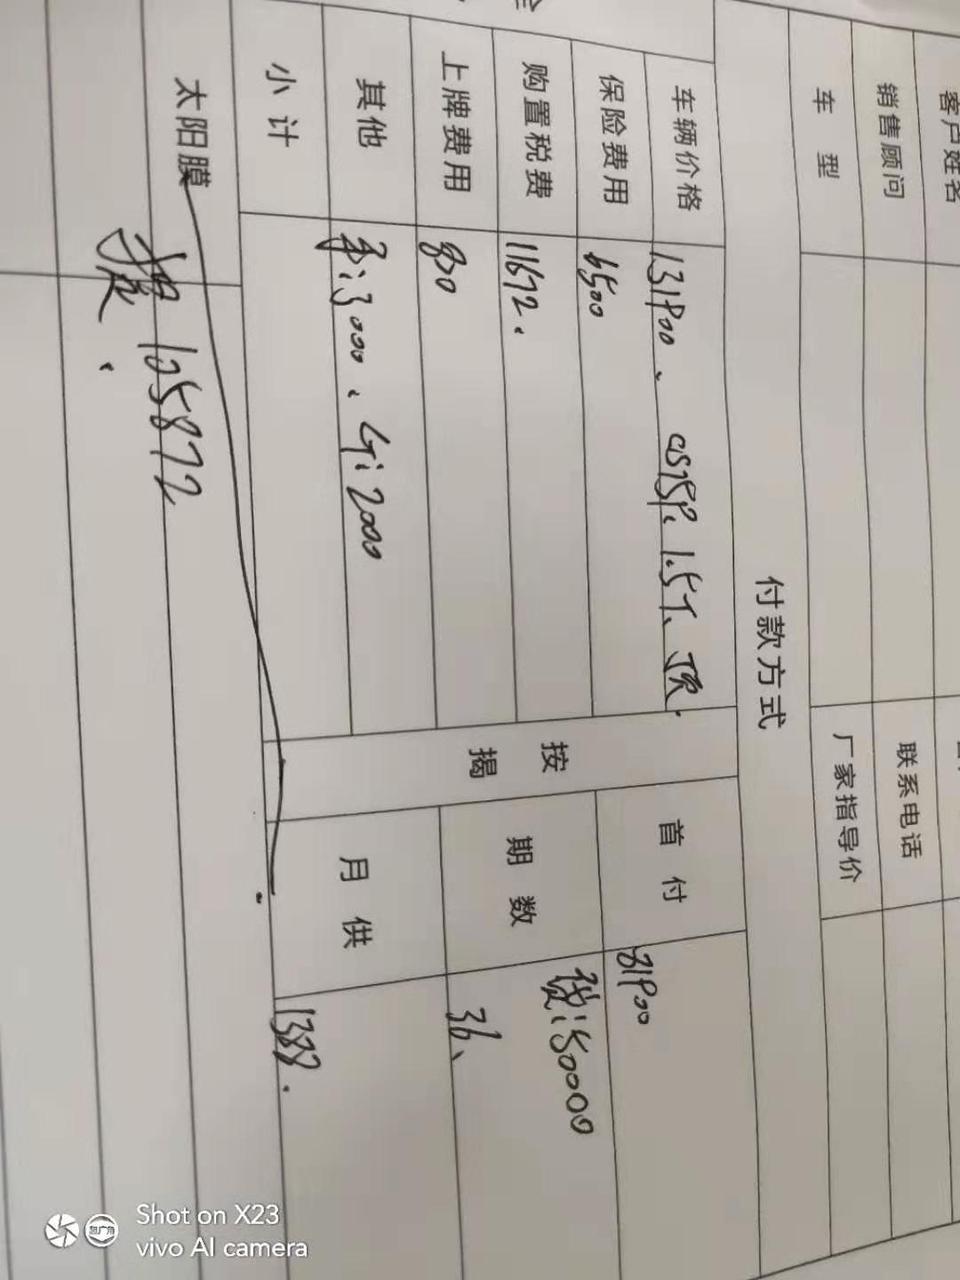 客户姓名
销售顾问 联系电话
车型 厂家指导价
付款方式
车辆价格 131900、 CS75P、1.5T、JR. 首付 81900
保险费用 6500 按揭
购置税费 11672. 期数 贷:50000
上牌费用 800 36、
其他 :3000、G:2000 月供 1388.
小计
太阳膜
105872
Shot on X23
vivo AI camera